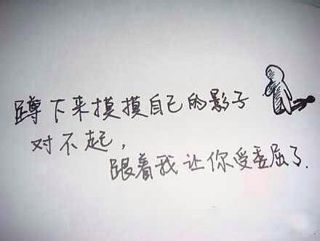 蹲下来摸摸自己的影子
对不起,
跟着我让你受委屈了.